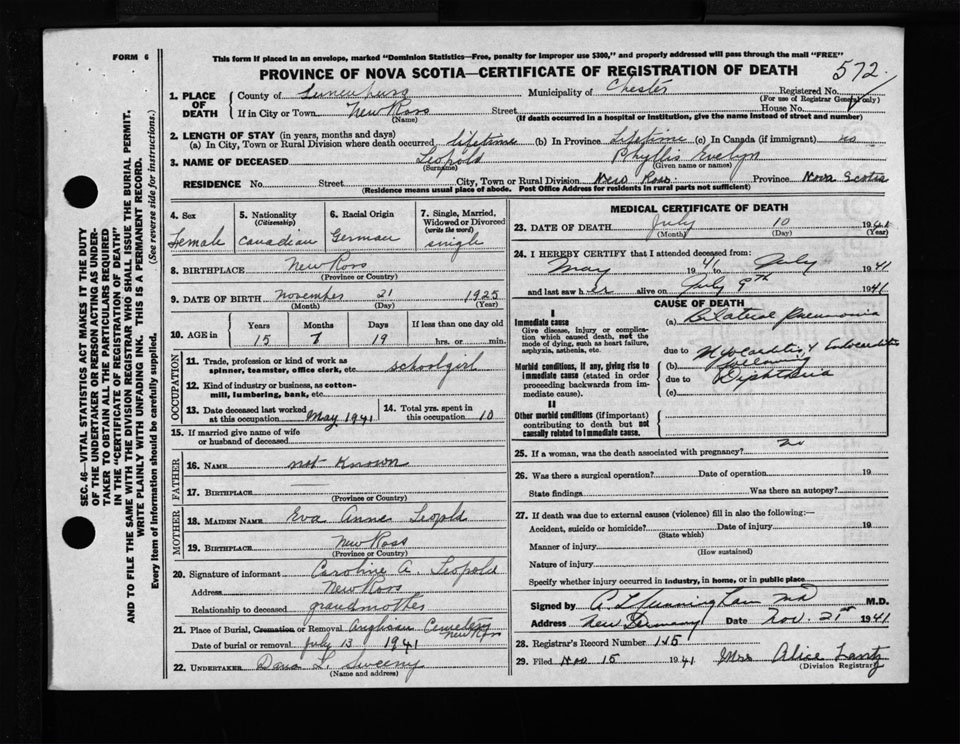 FORM 6
This form if placed in an envelope, marked "Dominion Statistics—Free, penalty for improper use $300," and properly addressed will pass through the mail "FREE"
PROVINCE OF NOVA SCOTIA—CERTIFICATE OF REGISTRATION OF DEATH
572
1. PLACE OF DEATH
County of Lunenburg Municipality of Chester Registered No.
(For use of Registrar General only)
If in City or Town New Ross Street House No.
(Name) (If death occurred in a hospital or institution, give the name instead of street and number)
2. LENGTH OF STAY (in years, months and days)
(a) In City, Town or Rural Division where death occurred lifetime (b) In Province Lifetime (c) In Canada (if immigrant)
3. NAME OF DECEASED Leopold Phyllis Evelyn
(Surname) (Given name or names)
RESIDENCE No. Street City, Town or Rural Division New Ross Province Nova Scotia
(Residence means usual place of abode. Post Office Address for residents in rural parts not sufficient)
SEC. 46—VITAL STATISTICS ACT MAKES IT THE DUTY
OF THE UNDERTAKER OR PERSON ACTING AS UNDER-
TAKER TO OBTAIN ALL THE PARTICULARS REQUIRED
IN THE "CERTIFICATE OF REGISTRATION OF DEATH"
AND TO FILE THE SAME WITH THE DIVISION REGISTRAR WHO SHALL ISSUE THE BURIAL PERMIT.
WRITE PLAINLY WITH UNFADING INK. THIS IS A PERMANENT RECORD.
Every item of information should be carefully supplied. (See reverse side for instructions.)
4. Sex
Female
5. Nationality
(Citizenship)
Canadian
6. Racial Origin
German
7. Single, Married,
Widowed or Divorced
(write the word)
single
8. BIRTHPLACE New Ross
(Province or Country)
9. DATE OF BIRTH November 21 1925
(Month) (Day) (Year)
10. AGE in
Years Months Days If less than one day old
15 7 19 hrs. or min.
OCCUPATION
11. Trade, profession or kind of work as
spinner, teamster, office clerk, etc. schoolgirl
12. Kind of industry or business, as cotton-
mill, lumbering, bank, etc.
13. Date deceased last worked
at this occupation May 1941
14. Total yrs. spent in
this occupation 10
15. If married give name of wife
or husband of deceased
FATHER
16. NAME not Known
17. BIRTHPLACE
(Province or Country)
MOTHER
18. MAIDEN NAME Eva Anne Leopold
19. BIRTHPLACE New Ross
(Province or Country)
20. Signature of informant Caroline A. Leopold
Address New Ross
Relationship to deceased grandmother
21. Place of Burial, Cremation or Removal Anglican Cemetery New Ross
Date of burial or removal July 13 1941
22. UNDERTAKER Dana L. Sweeny
(Name and address)
MEDICAL CERTIFICATE OF DEATH
23. DATE OF DEATH July 10 1941
(Month) (Day) (Year)
24. I HEREBY CERTIFY that I attended deceased from:
May 1941 to July 1941
and last saw her alive on July 9th 1941
CAUSE OF DEATH
I
Immediate cause
Give disease, injury or complica-
tion which caused death, not the
mode of dying, such as heart failure,
asphyxia, asthenia, etc.
(a) Bilateral Pneumonia
due to
Morbid conditions, if any, giving rise to
immediate cause (stated in order
proceeding backwards from im-
mediate cause).
(b) Myocarditis & Endocarditis following
due to Diphtheria
(c)
II
Other morbid conditions (if important)
contributing to death but not
causally related to immediate cause.
25. If a woman, was the death associated with pregnancy? no
26. Was there a surgical operation? Date of operation 19
State findings Was there an autopsy?
27. If death was due to external causes (violence) fill in also the following:—
Accident, suicide or homicide? Date of injury 19
(State which)
Manner of injury
(How sustained)
Nature of injury
Specify whether injury occurred in industry, in home, or in public place
Signed by M.D.
Address New Germany Date Nov. 21st 1941
28. Registrar's Record Number 145
29. Filed Nov 15 1941 Mrs Alice Lantz
(Division Registrar)